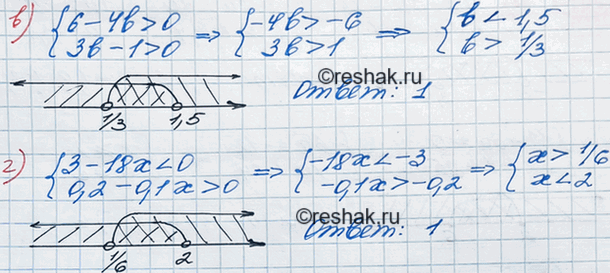 в) {6-4b>0 3b-1>0 ⇒ {-4b>-6 3b>1 ⇒ {b<1,5 b>1/3
©reshak.ru
1/3 1,5 Ответ: 1
г) {3-18x<0 0,2-0,1x>0 ⇒ {-18x<-3 -0,1x>-0,2 ⇒ {x>1/6 x<2
©reshak.ru
1/6 2 Ответ: 1